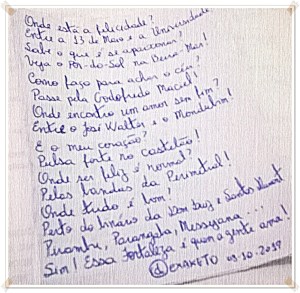 Onde está a felicidade?
Entre a 13 de Maio e a Universidade!
Sabe o que é se apaixonar?
Veja o Pôr-do-Sol na Beira-Mar!
Como faço para achar o céu?
Passa pela Godofredo Maciel!
Onde encontro um amor sem fim?
Entre o José Walter e o Mondubim!
E o meu coração?
Pulsa forte no Castelão!
Onde ser feliz é normal?
Pelas bandas da Perimetral!
Onde tudo é bom!
Perto do binário da Dom Luís e Santos Dumont
Pirambu, Parangaba, Messejana...
Sim! Essa Fortaleza é quem a gente ama!
09.10.2019